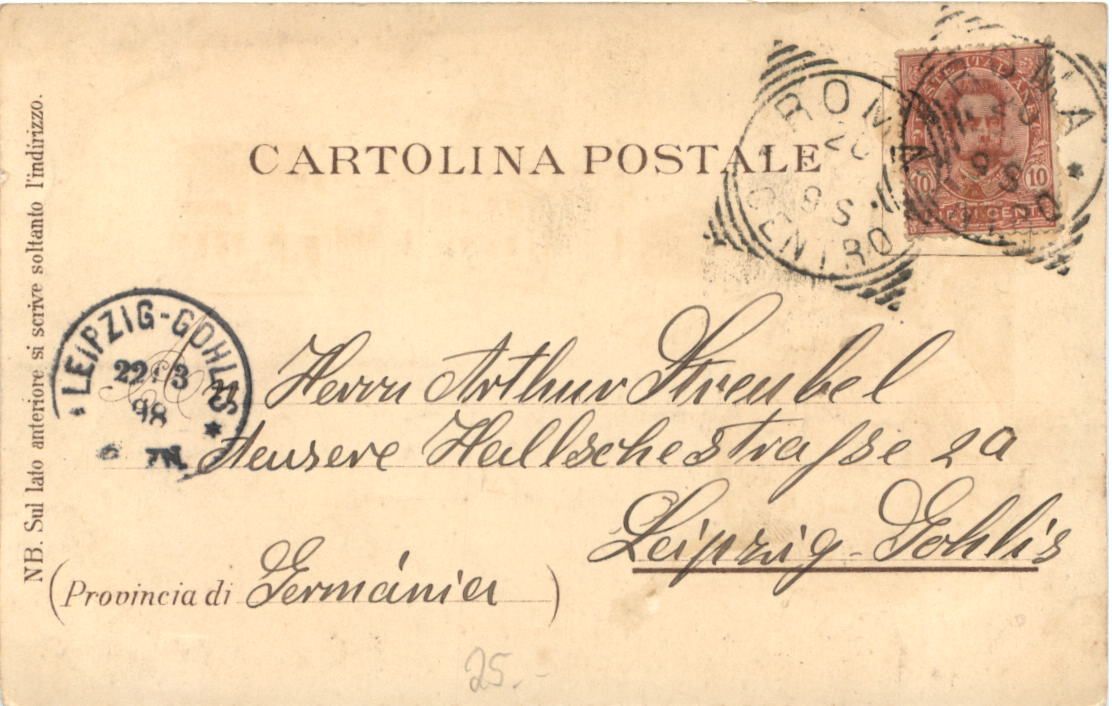 CARTOLINA POSTALE
POSTE ITALIANE
10 10
ROMA
20
98 S
CENTRO
ROMA
98 S
NB. Sul lato anteriore si scrive soltanto l'indirizzo.
LEIPZIG-GOHLIS
22 3
98
7N.
Herrn Arthur Streubel
Aeusere Hallschestraße 29
Leipzig-Gohlis
(Provincia di Germánia)
25.-